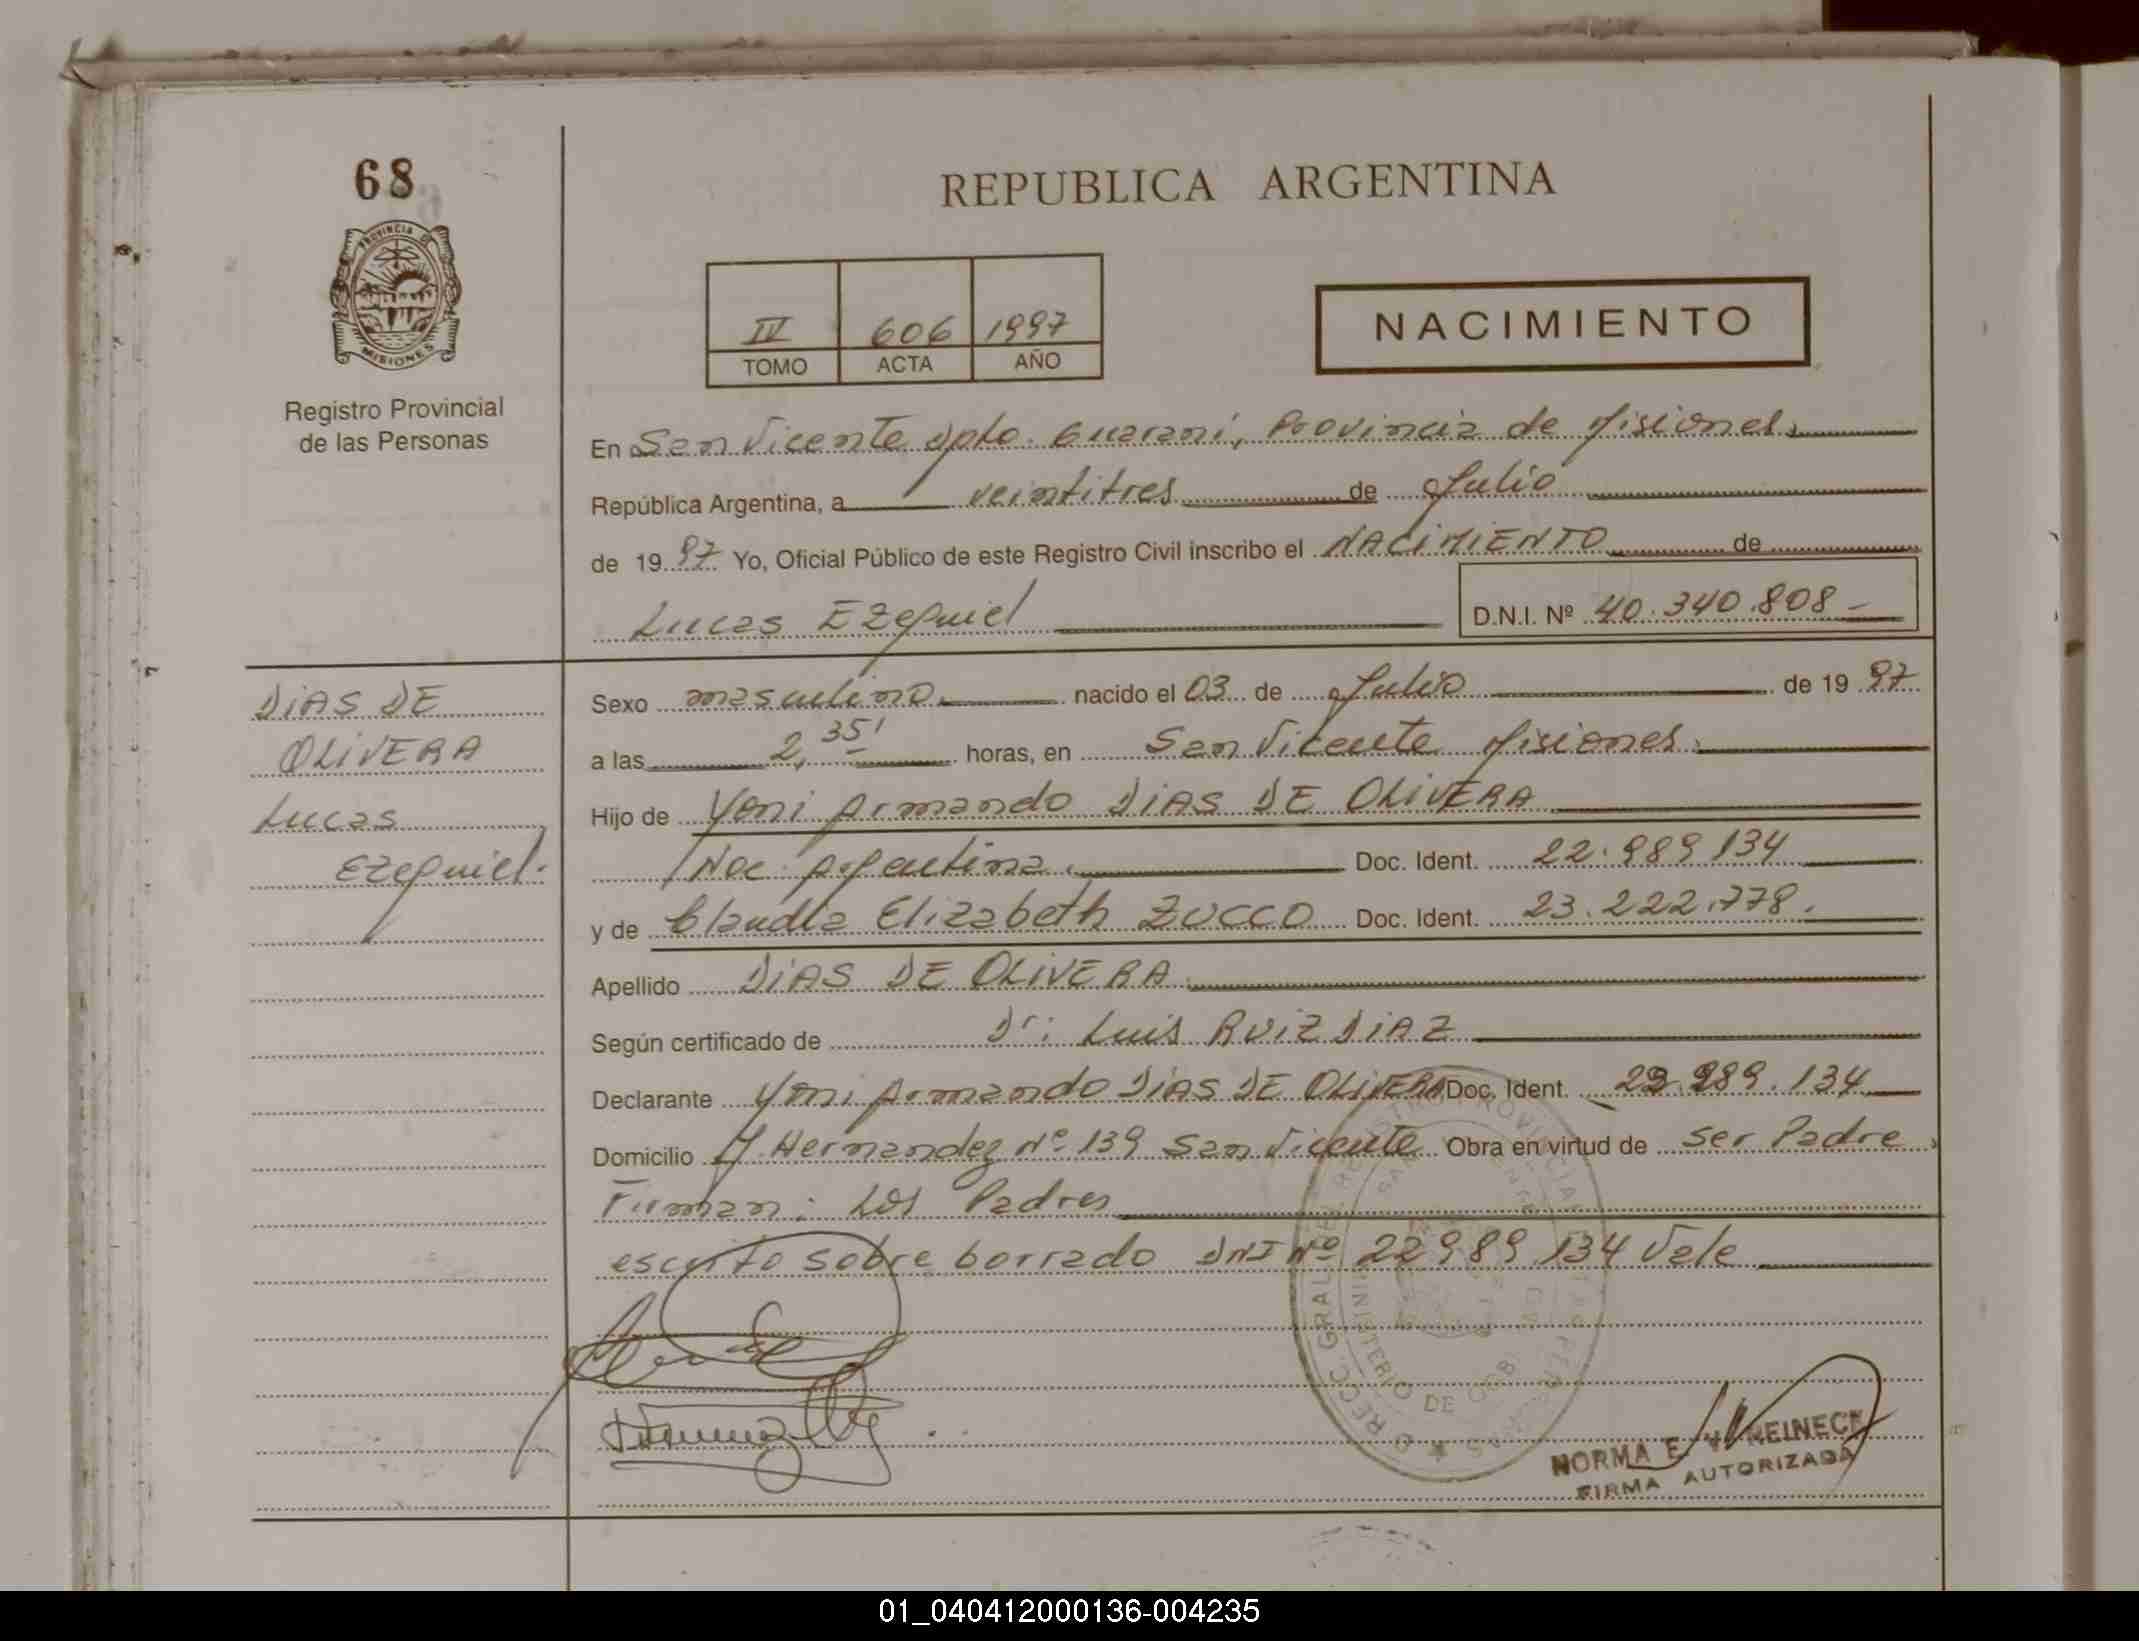 68
REPUBLICA ARGENTINA
PROVINCIA DE
MISIONES
Registro Provincial
de las Personas
IV 606 1997
TOMO ACTA AÑO
NACIMIENTO
En San Vicente Dpto. Guaraní, Provincia de Misiones.
República Argentina, a veintitres de Julio
de 1997 Yo, Oficial Público de este Registro Civil inscribo el NACIMIENTO de
Lucas Ezequiel D.N.I. Nº 40.340.808-
DIAS DE
OLIVERA
Lucas
Ezequiel.
Sexo masculino. nacido el 03 de Julio de 1997
a las 2,35' horas, en San Vicente Misiones.
Hijo de Yoni Armando DIAS DE OLIVERA
Nac. Argentina. Doc. Ident. 22.989.134
y de Claudia Elizabeth ZUCCO Doc. Ident. 23.222.778.
Apellido DIAS DE OLIVERA.
Según certificado de Dr: Luis RUIZ DIAZ
Declarante Yoni Armando DIAS DE OLIVERA Doc. Ident. 22.989.134
Domicilio J. Hernandez Nº 139 San Vicente Obra en virtud de ser Padre
Firman: Los Padres
escrito sobre borrado DNI Nº 22989.134 Vale
NORMA E. V.
FIRMA AUTORIZADA
01_040412000136-004235